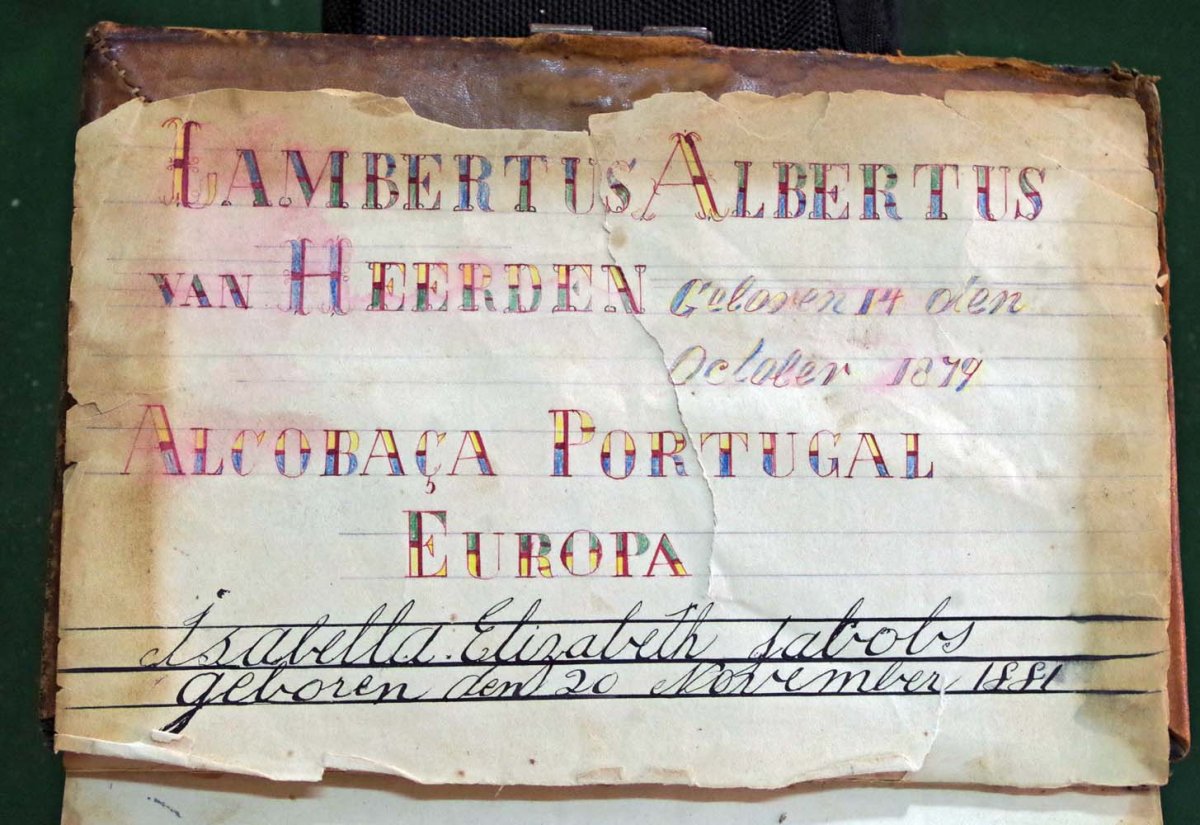 LAMBERTUS ALBERTUS
VAN HEERDEN Geboren 14 den
October 1879
ALCOBAÇA PORTUGAL
EUROPA
Isabella Elizabeth Jabobs
geboren den 20 November 1881